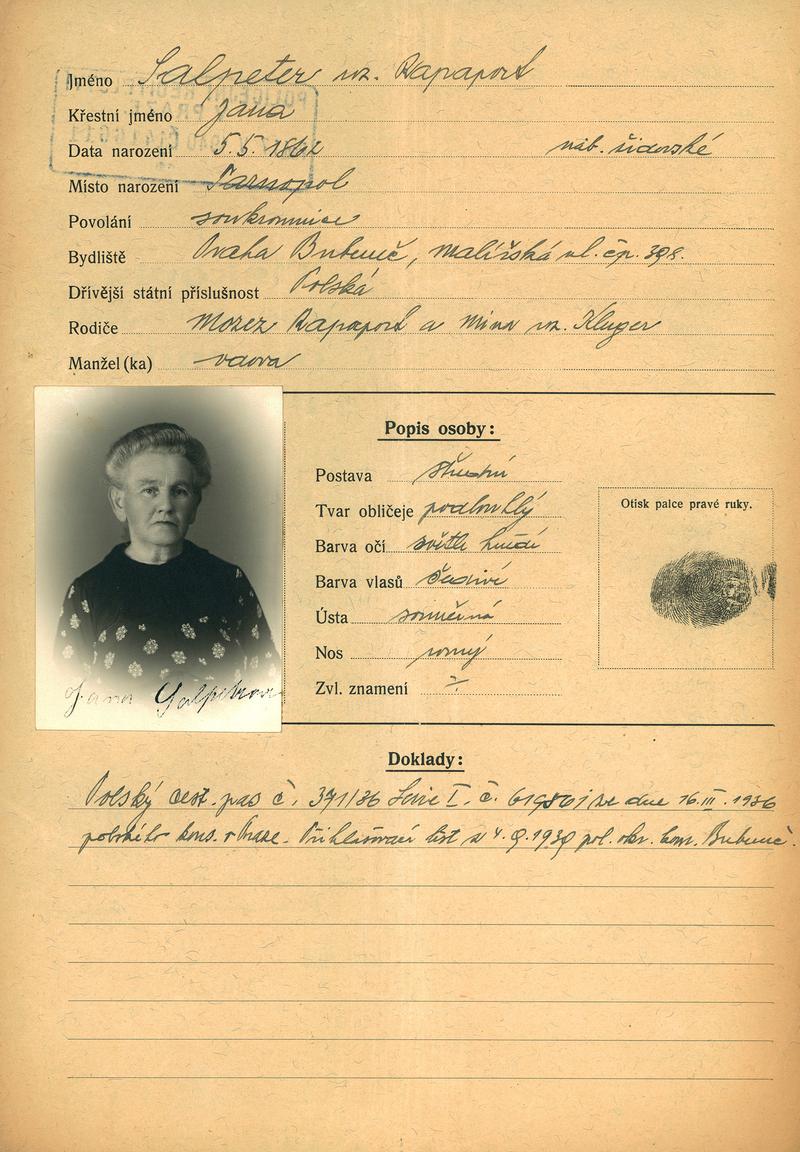 Jméno Salpeter roz. Rapaport
Křestní jméno Jana
Data narození 5. 5. 1862 náb. židovské
Místo narození Tarnopol
Povolání soukromnice
Bydliště Praha Bubeneč, Malířská ul. čp. 398.
Dřívější státní příslušnost Polská
Rodiče Mozez Rapaport a Mina roz. Kluger
Manžel (ka) vdova
Popis osoby:
Postava střední
Tvar obličeje podlouhlý
Barva očí světle hnědé
Barva vlasů šedivé
Ústa souměrná
Nos rovný
Zvl. znamení ÷
Otisk palce pravé ruky.
Jana Salpetrova
Doklady:
Polský cest. pas č. 371/36 Serie I. č. ze dne 16. III. 1936
polského kons. v Praze. Přihlašovací list z 4. 9. 1939 pol. okr. kom. Bubeneč.